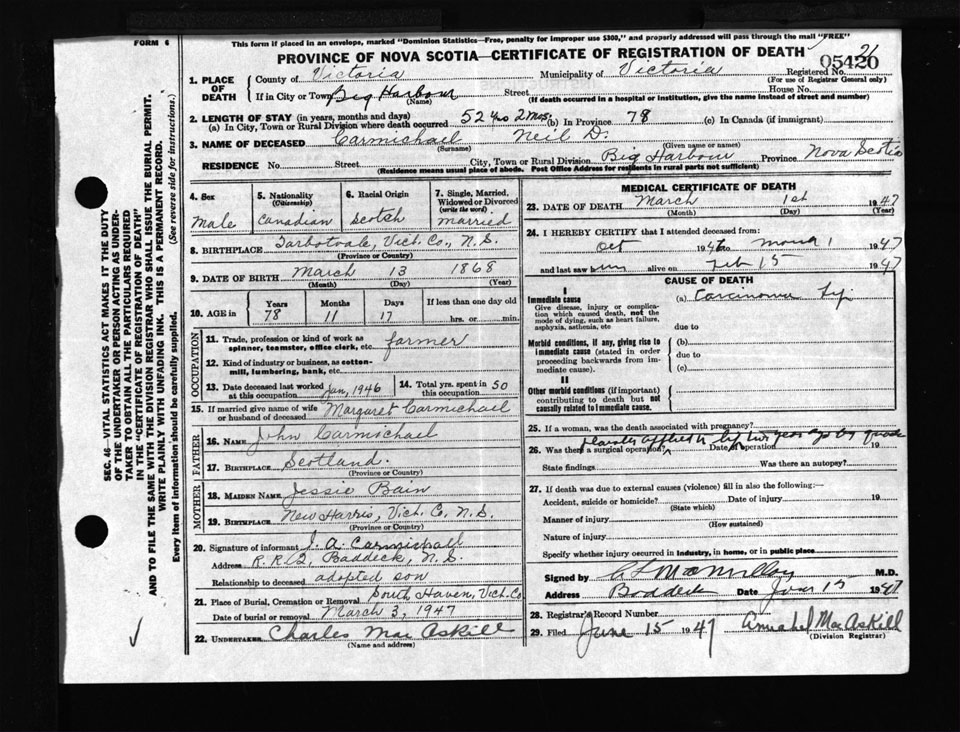 FORM 6
This form if placed in an envelope, marked "Dominion Statistics—Free, penalty for improper use $300," and properly addressed will pass through the mail "FREE"
PROVINCE OF NOVA SCOTIA—CERTIFICATE OF REGISTRATION OF DEATH
21
05420
Registered No.
(For use of Registrar General only)
1. PLACE OF DEATH
County of Victoria Municipality of Victoria
If in City or Town Big Harbour (Name) Street House No.
(If death occurred in a hospital or institution, give the name instead of street and number)
2. LENGTH OF STAY (in years, months and days)
(a) In City, Town or Rural Division where death occurred 52 yrs 2 mos. (b) In Province 78 (c) In Canada (if immigrant)
3. NAME OF DECEASED Carmichael Neil D.
(Surname) (Given name or names)
RESIDENCE No. Street City, Town or Rural Division Big Harbour Province Nova Scotia
(Residence means usual place of abode. Post Office Address for residents in rural parts not sufficient)
4. Sex
Male
5. Nationality (Citizenship)
Canadian
6. Racial Origin
Scotch
7. Single, Married, Widowed or Divorced (write the word)
married
8. BIRTHPLACE Tarbotvale, Vict. Co., N.S.
(Province or Country)
9. DATE OF BIRTH March 13 1868
(Month) (Day) (Year)
10. AGE in
Years Months Days If less than one day old
78 11 17 hrs. or min.
OCCUPATION
11. Trade, profession or kind of work as spinner, teamster, office clerk, etc. farmer
12. Kind of industry or business, as cotton-mill, lumbering, bank, etc.
13. Date deceased last worked at this occupation Jan, 1946
14. Total yrs. spent in this occupation 50
15. If married give name of wife or husband of deceased Margaret Carmichael
FATHER
16. NAME John Carmichael
17. BIRTHPLACE Scotland.
(Province or Country)
MOTHER
18. MAIDEN NAME Jessie Bain
19. BIRTHPLACE New Harris, Vict. Co. N.S.
(Province or Country)
20. Signature of informant J. A. Carmichael
Address R.R. 2, Baddeck, N.S.
Relationship to deceased adopted son
21. Place of Burial, Cremation or Removal South Haven, Vict. Co.
Date of burial or removal March 3, 1947
22. UNDERTAKER Charles MacAskill
(Name and address)
MEDICAL CERTIFICATE OF DEATH
23. DATE OF DEATH March 1st 1947
(Month) (Day) (Year)
24. I HEREBY CERTIFY that I attended deceased from:
Oct 1946 to March 1 1947
and last saw him alive on Feb 15 1947
CAUSE OF DEATH
I
Immediate cause (a) Carcinoma Lip
Give disease, injury or complication which caused death, not the mode of dying, such as heart failure, asphyxia, asthenia, etc
due to
Morbid conditions, if any, giving rise to immediate cause (stated in order proceeding backwards from immediate cause). (b)
due to
(c)
II
Other morbid conditions (if important) contributing to death but not causally related to immediate cause.
25. If a woman, was the death associated with pregnancy?
26. Was there a surgical operation? Date of operation 19
State findings Was there an autopsy?
27. If death was due to external causes (violence) fill in also the following:—
Accident, suicide or homicide? Date of injury 19
(State which)
Manner of injury
(How sustained)
Nature of injury
Specify whether injury occurred in industry, in home, or in public place
Signed by C L MacMillan M.D.
Address Baddeck Date June 15 1947
28. Registrar's Record Number
29. Filed June 15 1947 Annabel MacAskill
(Division Registrar)
SEC. 46—VITAL STATISTICS ACT MAKES IT THE DUTY
OF THE UNDERTAKER OR PERSON ACTING AS UNDER-
TAKER TO OBTAIN ALL THE PARTICULARS REQUIRED
IN THE "CERTIFICATE OF REGISTRATION OF DEATH"
AND TO FILE THE SAME WITH THE DIVISION REGISTRAR WHO SHALL ISSUE THE BURIAL PERMIT.
WRITE PLAINLY WITH UNFADING INK. THIS IS A PERMANENT RECORD.
Every item of information should be carefully supplied. (See reverse side for instructions.)